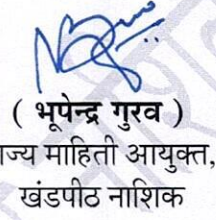 ( भूपेन्द्र गुरव )
ज्य माहिती आयुक्त,
खंडपीठ नाशिक